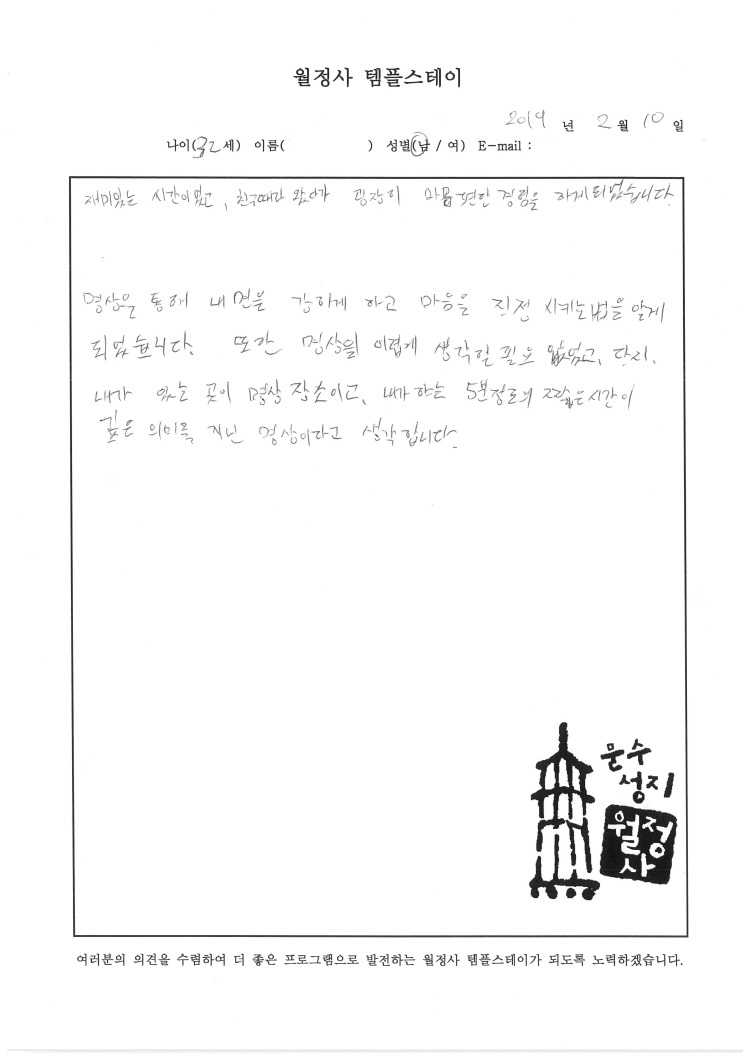 월정사 템플스테이
2019 년 2 월 10 일
나이(32세) 이름( ) 성별(남 / 여) E-mail :
재미있는 시간이었고, 친구따라 왔다가 굉장히 마음 편한 경험을 하게되었습니다.
명상을 통해 내면을 강하게 하고 마음을 진전 시키는 법을 알게
되었습니다. 또한 명상을 어렵게 생각할 필요 없었고, 단지,
내가 있는 곳이 명상 장소이고, 내가 하는 5분정도의 짧은 시간이
깊은 의미를 지닌 명상이라고 생각합니다.
문수
성지
월정
사
여러분의 의견을 수렴하여 더 좋은 프로그램으로 발전하는 월정사 템플스테이가 되도록 노력하겠습니다.